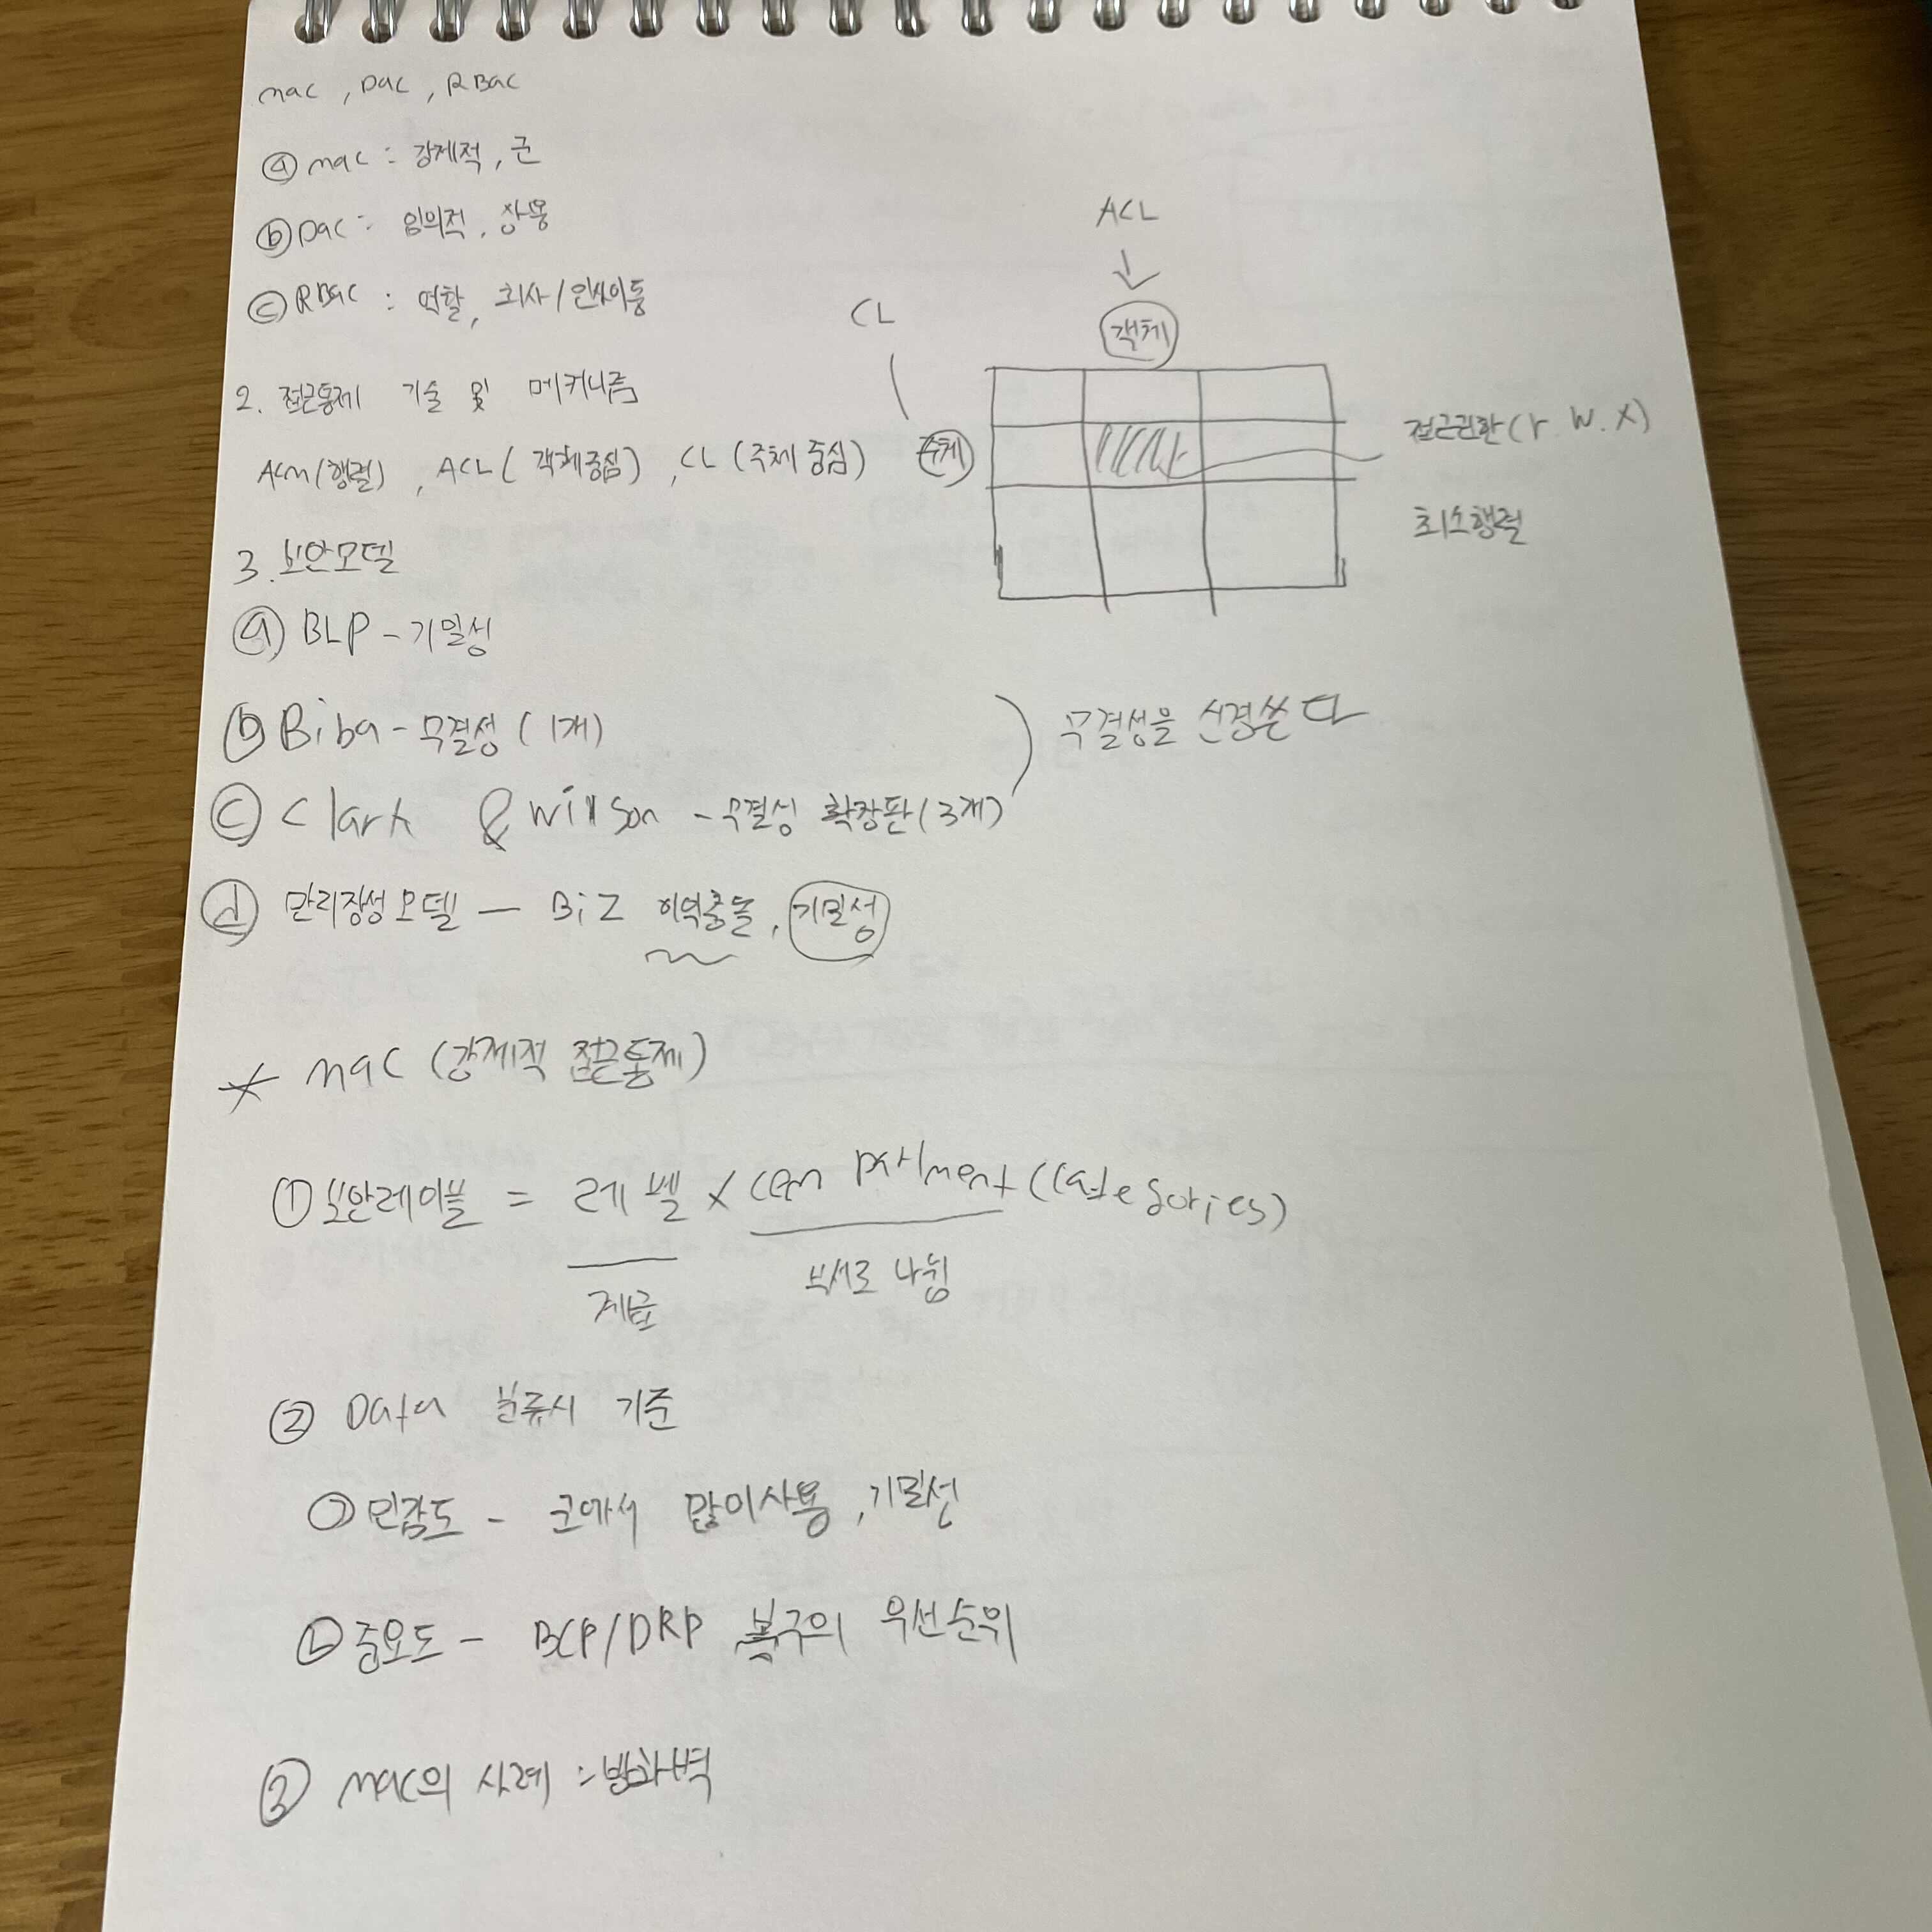 mac, Dac, RBac
ⓐ mac : 강제적, 군
ⓑ Dac : 임의적, 상용
ⓒ RBac : 역할, 회사/인사이동
2. 접근통제 기술 및 메커니즘
ACM(행렬), ACL(객체중심), CL(주체중심)
ACL
CL
객체
주체
접근권한(r.w.x)
희소행렬
3. 보안모델
ⓐ BLP - 기밀성
ⓑ Biba - 무결성(1개)
ⓒ Clark & Willson - 무결성 확장판(3개)
무결성을 신경쓴다
ⓓ 만리장성모델 - Biz 이익충돌, 기밀성
* mac (강제적 접근통제)
① 보안레이블 = 레벨 x compartment(categories)
계급
부서로 나뉨
② Data 분류시 기준
㉠ 민감도 - 군에서 많이사용, 기밀성
㉡ 중요도 - BCP/DRP 복구의 우선순위
③ mac의 사례 : 방화벽